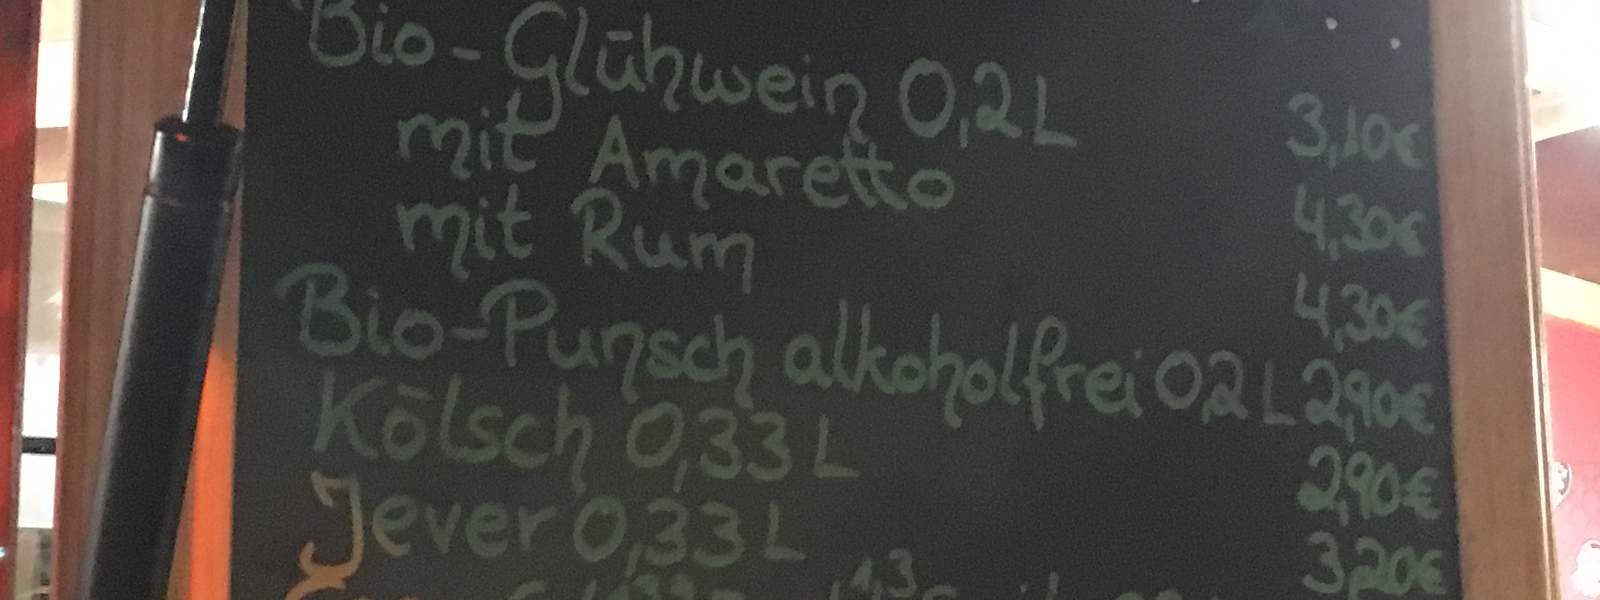 Bio-Glühwein 0,2L 3,10€
mit Amaretto 4,30€
mit Rum 4,30€
Bio-Punsch alkoholfrei 0,2L 2,90€
Kölsch 0,33L 2,90€
Jever 0,33L 3,20€